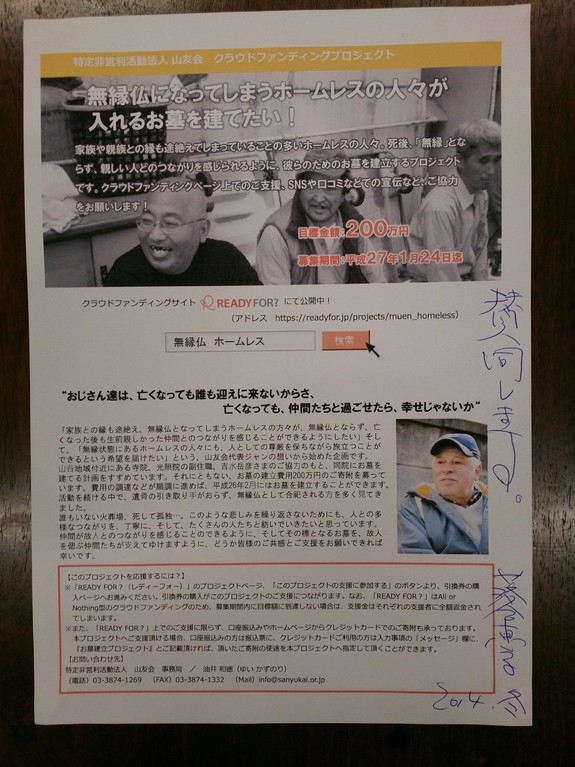 特定非営利活動法人 山友会　クラウドファンディングプロジェクト
無縁仏になってしまうホームレスの人々が
入れるお墓を建てたい！
家族や親族との縁も途絶えてしまっていることの多いホームレスの人々。死後、「無縁」とな
らず、親しい人とのつながりを感じられるように、彼らのためのお墓を建立するプロジェクト
です。クラウドファンディングページ上でのご支援、SNSや口コミなどでの宣伝など、ご協力
をお願いします！
目標金額:200万円
募集期間:平成27年1月24日迄
クラウドファンディングサイト READYFOR? にて公開中！
（アドレス　https://readyfor.jp/projects/muen_homeless）
無縁仏 ホームレス
検索
“おじさん達は、亡くなっても誰も迎えに来ないからさ、
亡くなっても、仲間たちと過ごせたら、幸せじゃないか”
「家族との縁も途絶え、無縁仏となってしまうホームレスの方々が、無縁仏とならず、亡
くなった後も生前親しかった仲間とのつながりを感じることができるようにしたい」そして、
「無縁状態にあるホームレスの人々にも、人としての尊厳を保ちながら旅立つことが
できるという希望を届けたい」という、山友会代表ジャンの想いから始めた企画です。
山谷地域付近にある寺院、光照院の副住職、吉水岳彦さまのご協力のもと、同院にお墓を
建てる計画をすすめています。それにともない、お墓の建立費用200万円のご寄附を募って
います。費用の調達などが順調に進めば、平成26年2月にはお墓を建立することができます。
活動を続ける中で、遺骨の引き取り手がおらず、無縁仏として合祀される方を多く見てき
ました。
誰もいない火葬場、死して孤独…。このような悲しみを繰り返さないためにも、人との多
様なつながりを、丁寧に、そして、たくさんの人たちと紡いでいきたいと思っています。
仲間が故人とのつながりを感じることのできるように、そしてその標となるお墓を、故人
を偲ぶ仲間たちが支えてゆけますように、どうか皆様のご共感とご支援をお願いできれば
幸いです。
【このプロジェクトを応援するには？】
※「READY FOR？（レディーフォー）」のプロジェクトページ、「このプロジェクトの支援に参加する」のボタンより、引換券の購
入ページへお進みください。引換券の購入がこのプロジェクトのご支援につながります。なお、「READY FOR？」はAll or
Nothing型のクラウドファンディングのため、募集期間内に目標額に到達しない場合は、支援金はそれぞれの支援者に全額返金され
てしまいます。
※また、「READY FOR？」上でのご支援に限らず、口座振込みやホームページからクレジットカードでのご寄附も承っております。
本プロジェクトへご支援頂ける場合、口座振込みの方は振込票に、クレジットカードご利用の方は入力事項の「メッセージ」欄に、
『お墓建立プロジェクト』とご記載頂ければ、頂いたご寄附の使途を本プロジェクトへ指定して頂くことができます。
【お問い合わせ先】
特定非営利活動法人　山友会　事務局　／　油井 和徳（ゆい かずのり）
（電話）03-3874-1269　（FAX）03-3874-1332　（Mail）info@sanyukai.or.jp
賛同します。
2014.